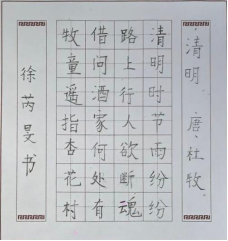 清明 唐、杜牧
清明时节雨纷纷
路上行人欲断魂
借问酒家何处有
牧童遥指杏花村
徐芮旻书